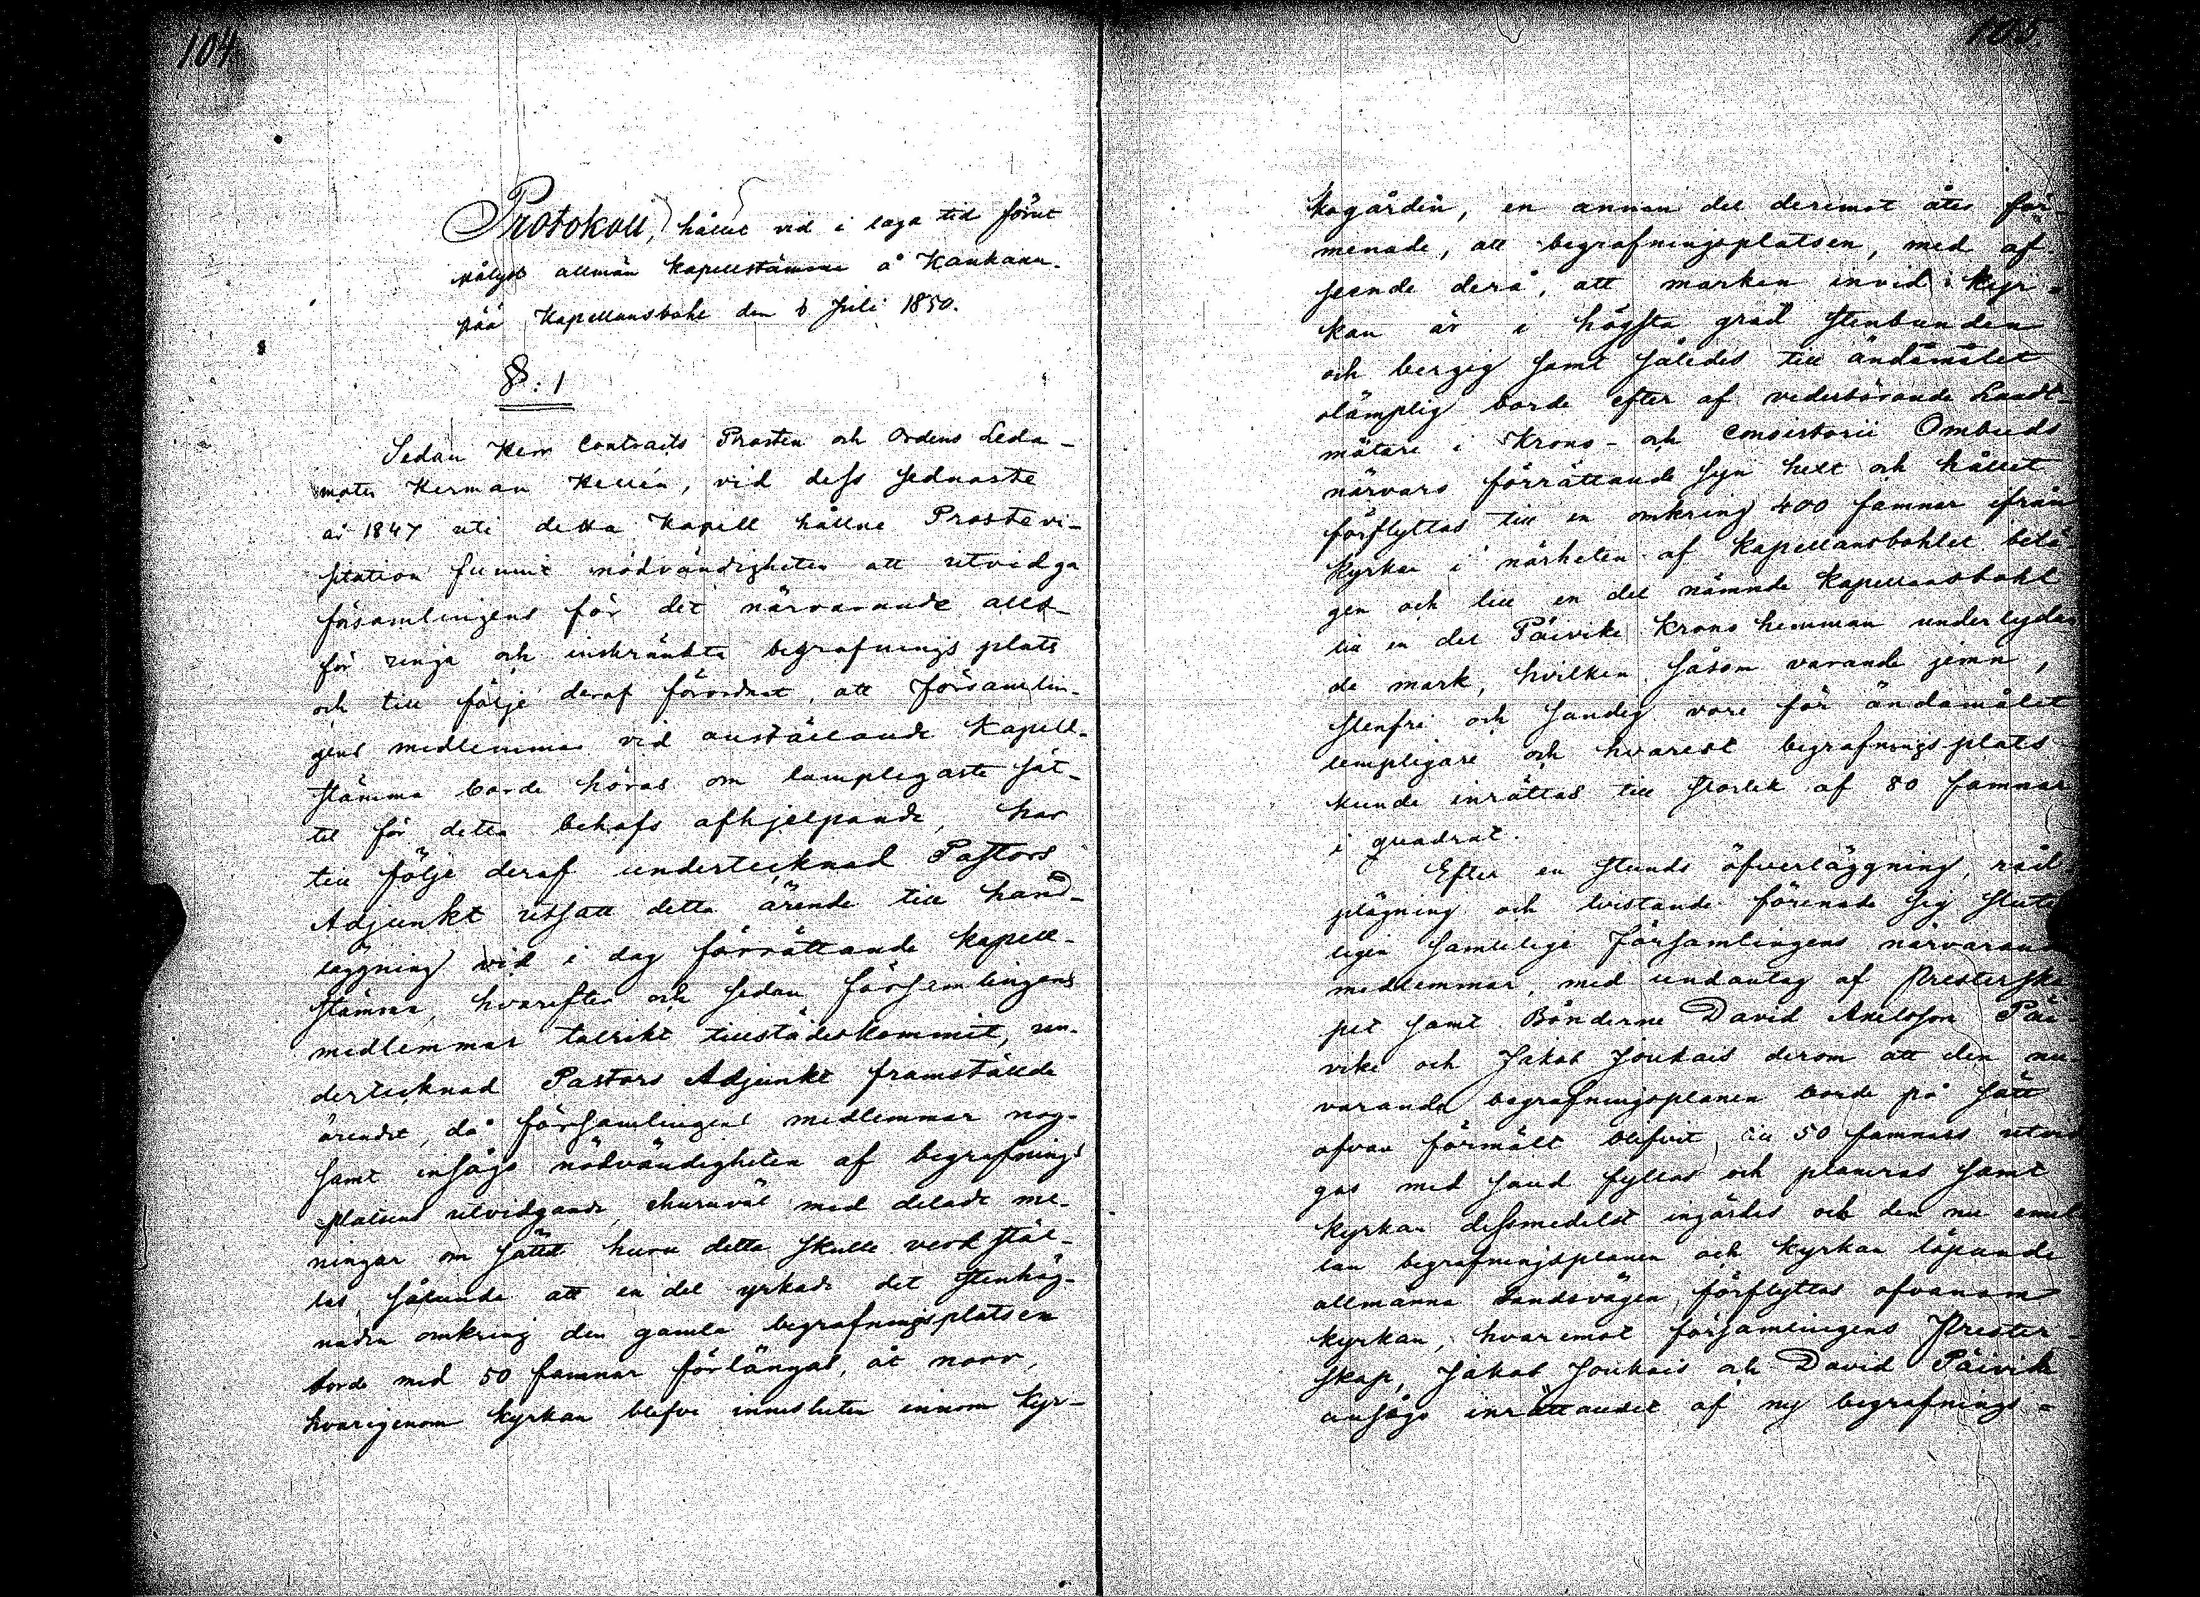 104.
Protokoll, hållit vid i laga tid förut
pålyst allmän kapellstämma å Kankaan-
pää Kapellansbohl den 6 Juli 1850.
§: 1
Sedan Herr Contracts Prosten och Ordens Leda-
moten Herman Hellén, vid dess sednaste
år 1847 uti detta Kapell hållne Prostevi-
sitation funnit nödvändigheten att utvidga
församlingens för det närvarande allt-
för ringa och inskränkta begrafnings plats
och till följe deraf förordnat, att församlin-
gens medlemmar vid anställande Kapell-
stämma borde höras om lämpligaste sät-
tet för detta behofs afhjelpande, har
till följe deraf undertecknad Pastors
Adjunkt utsatt detta ärende till hand-
läggning vid i dag förrättande kapell-
stämma, hvarefter och sedan församlingens
medlemmar talrikt tillstädeskommit, un-
dertecknad Pastors Adjunkt framställde
ärendet, då församlingens medlemmar nog-
samt insågo nödvändigheten af begrafnings
platsens utvidgande, ehuruväl med delade me-
ningar om sättet huru detta skulle verkstäl-
las, sålunda att en del yrkade det stenhäg-
naden omkring den gamla begrafningsplatsen
borde med 50 famnar förlängas, åt norr,
hvarigenom kyrkan blefve innesluten innom Kyr-
105.
kogården, en annan del deremot åter för-
menade, att begrafningsplatsen, med af-
seende derå, att marken invid kyr-
kan är i högsta grad stenbunden
och bergig samt således till ändamålet
olämplig borde efter af vederbörande Landt-
mätare i Krono- och Consistorii Ombuds
närvaro förrättande syn helt och hållet
förflyttas till en omkring 400 famnar ifrån
kyrkan i närheten af Kapellansbohlet belä-
gen och till en del nämnde Kapellansbohl
till en del Päivike Krono hemman underlydan
de mark, hvilken såsom varande jemn,
stenfri och sandig vore för ändamålet
lempligare och hvarest begrafnings plats
kunde inrättas till storlek af 80 famnar
i quadrat.
Efter en stunds öfverläggning, råd-
plägning och tvistande förenade sig slut
ligen samtelige församlingens närvarande
medlemmar, med undantag af Presterska
pet samt Bönderne David Axelsson Päi-
vike och Jakob Jouhais derom att den nu-
varande begrafningsplanen borde på sätt
ofvan förmält blifvit, till 50 famnars utvid
gas med sand fyllas och planeras samt
kyrkan dessmedelst ingärdes och den nu emel
lan begrafningsplanen och kyrkan löpande
allmänna landsvägen förflyttas ofvanom
kyrkan, hvaremot församlingens Prester-
skap, Jakob Jouhais och David Päivike
ansågo inrättandet af ny begrafnings-